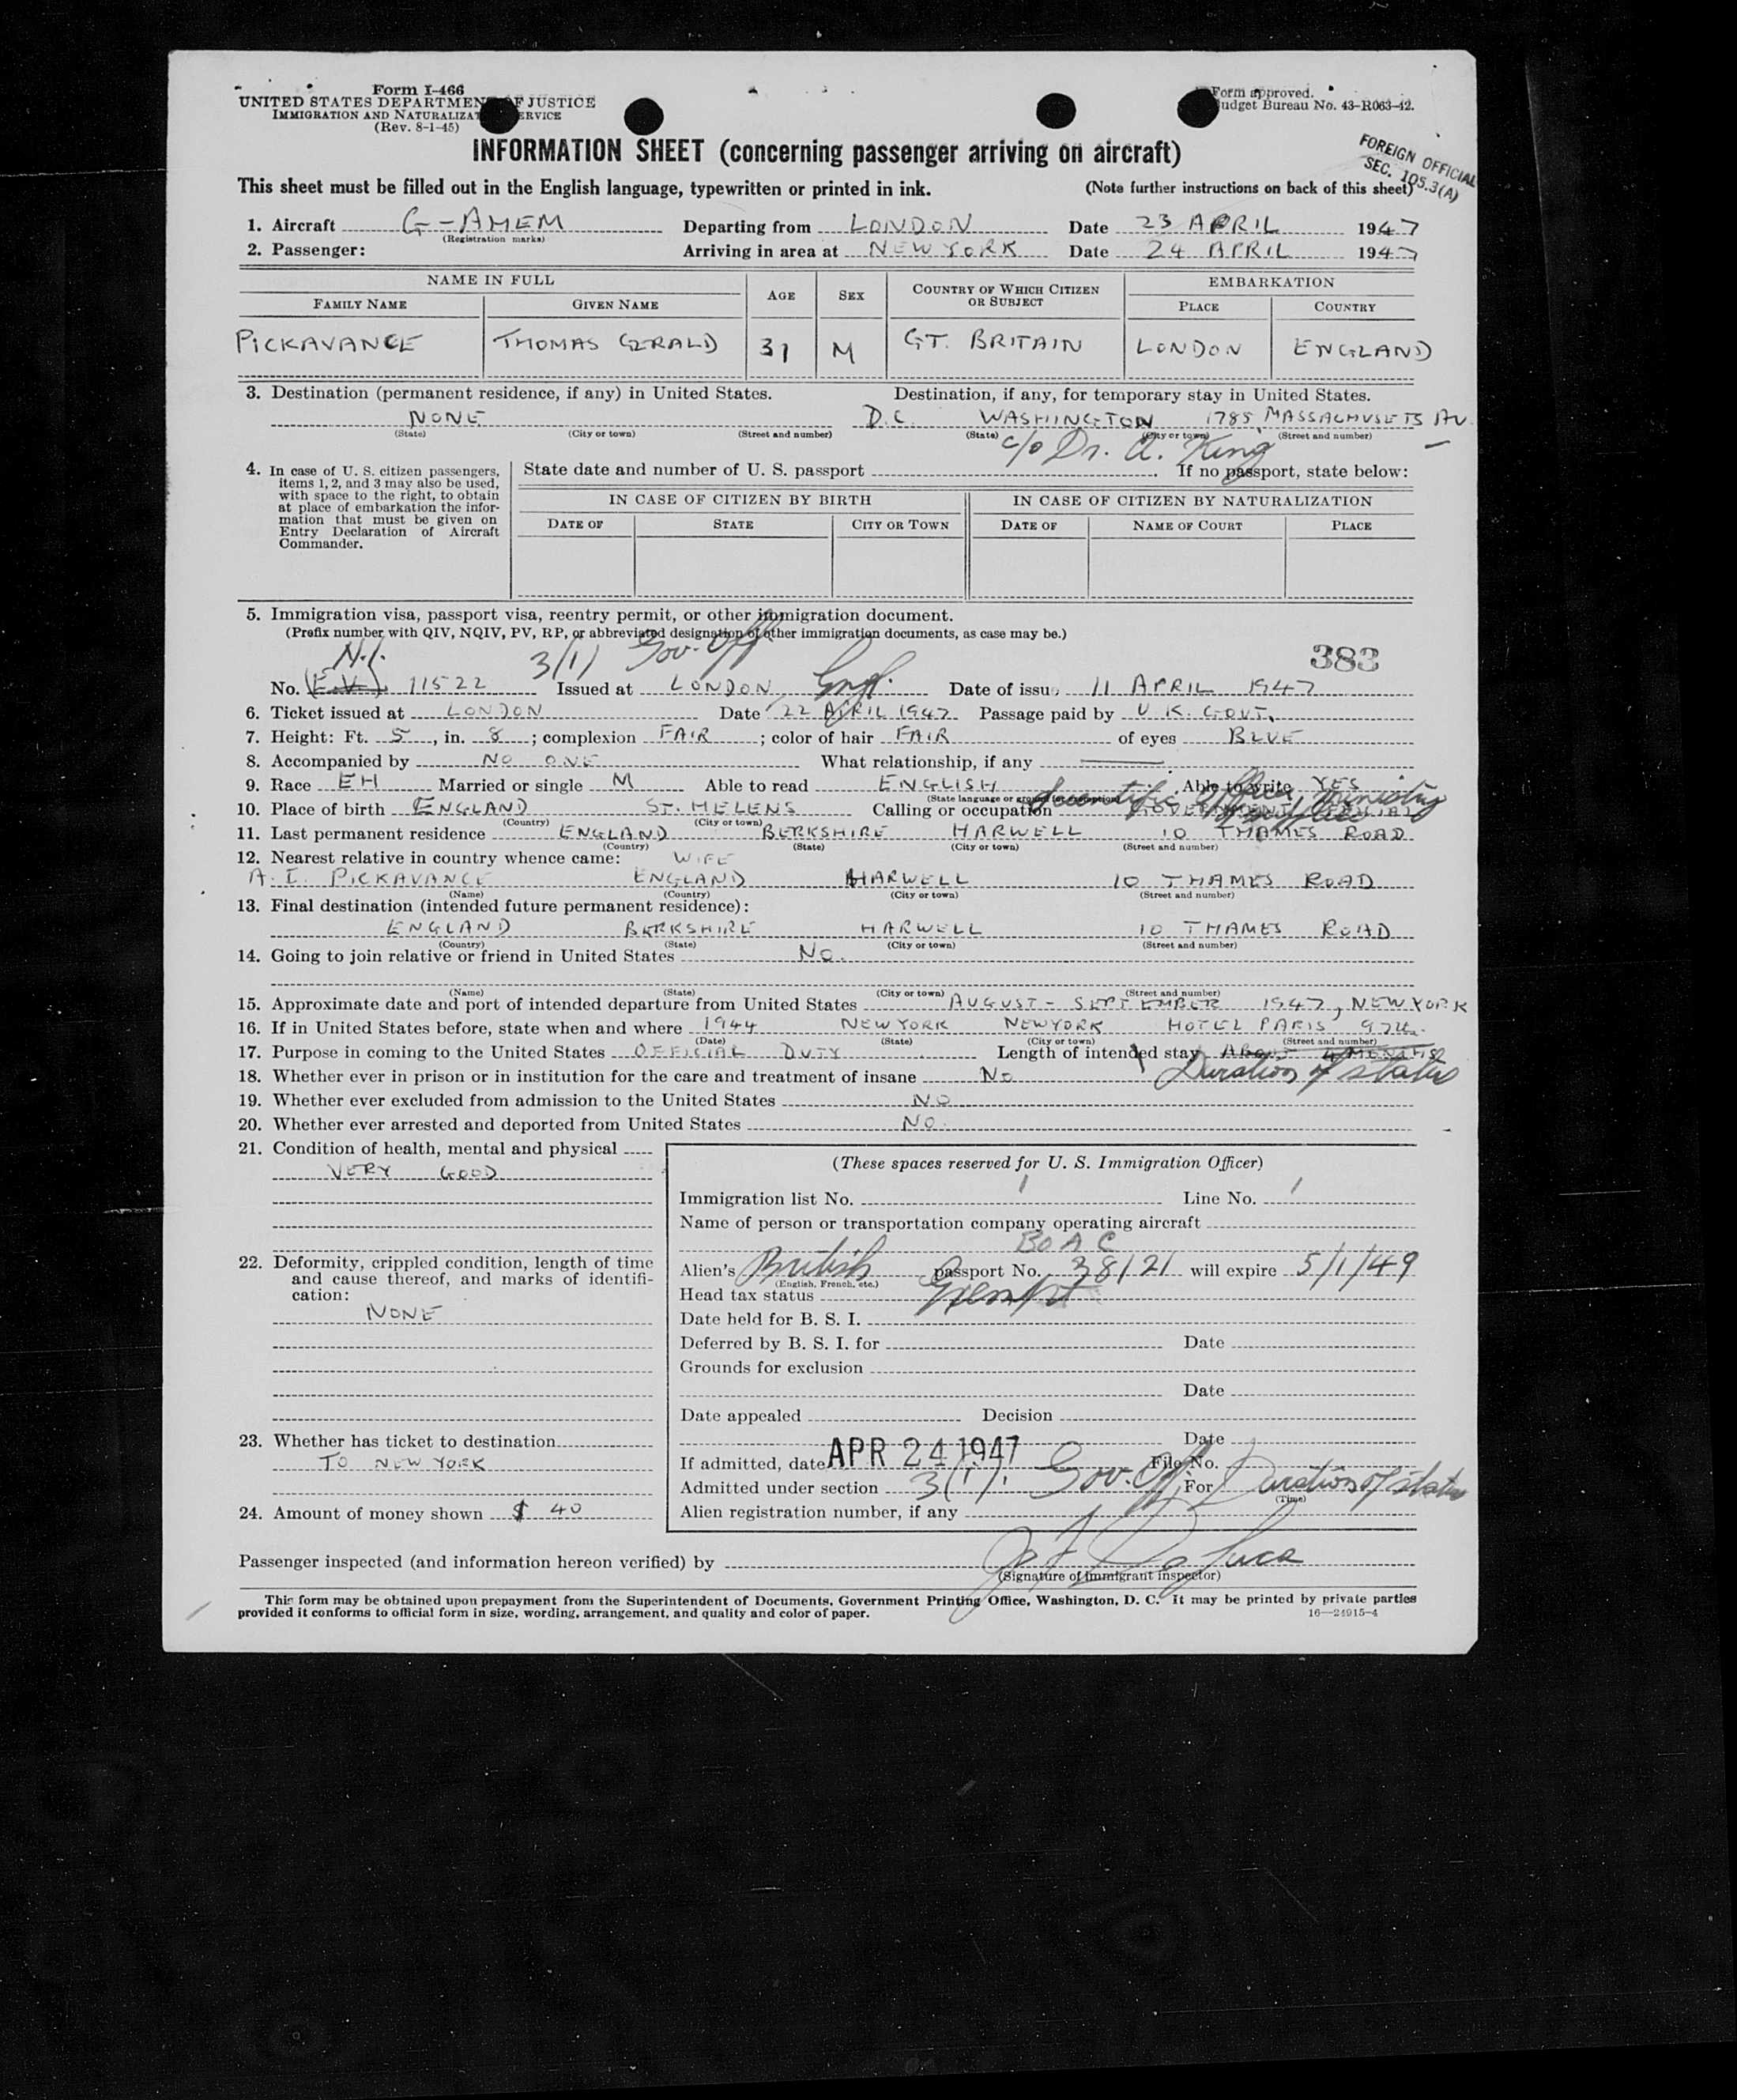 Form I-466
UNITED STATES DEPARTMENT OF JUSTICE
IMMIGRATION AND NATURALIZATION SERVICE
(Rev. 8-1-45)
Form approved.
Budget Bureau No. 43-R063-42.
INFORMATION SHEET (concerning passenger arriving on aircraft)
FOREIGN OFFICIAL
SEC. 105.3(A)
This sheet must be filled out in the English language, typewritten or printed in ink. (Note further instructions on back of this sheet)
1. Aircraft G-AHEM Departing from LONDON Date 23 APRIL 1947
(Registration marks)
2. Passenger: Arriving in area at NEW YORK Date 24 APRIL 1947
NAME IN FULL AGE SEX COUNTRY OF WHICH CITIZEN OR SUBJECT EMBARKATION
FAMILY NAME GIVEN NAME PLACE COUNTRY
PICKAVANCE THOMAS GERALD 31 M GT. BRITAIN LONDON ENGLAND
3. Destination (permanent residence, if any) in United States. Destination, if any, for temporary stay in United States.
NONE D.C. WASHINGTON 1785, MASSACHUSETS AV.
(State) (City or town) (Street and number) (State) (City or town) (Street and number)
c/o Dr. A. King
4. In case of U. S. citizen passengers, items 1, 2, and 3 may also be used, with space to the right, to obtain at place of embarkation the information that must be given on Entry Declaration of Aircraft Commander.
State date and number of U. S. passport If no passport, state below:
IN CASE OF CITIZEN BY BIRTH IN CASE OF CITIZEN BY NATURALIZATION
DATE OF STATE CITY OR TOWN DATE OF NAME OF COURT PLACE
5. Immigration visa, passport visa, reentry permit, or other immigration document.
(Prefix number with QIV, NQIV, PV, RP, or abbreviated designation of other immigration documents, as case may be.)
3/1) Gov. Off 383
No. (E.V.) 11522 Issued at LONDON, Engl. Date of issue 11 APRIL 1947
6. Ticket issued at LONDON Date 22 APRIL 1947 Passage paid by U.K. GOVT.
7. Height: Ft. 5, in. 8; complexion FAIR; color of hair FAIR of eyes BLUE
8. Accompanied by NO ONE What relationship, if any
9. Race EH Married or single M Able to read ENGLISH Able to write YES
(State language or ground for exemption)
Scientific Officer, Ministry of Supplies
10. Place of birth ENGLAND ST. HELENS Calling or occupation GOVERNMENT OFFICIAL
(Country) (City or town)
11. Last permanent residence ENGLAND BERKSHIRE HARWELL 10 THAMES ROAD
(Country) (State) (City or town) (Street and number)
12. Nearest relative in country whence came: WIFE
A. I. PICKAVANCE ENGLAND HARWELL 10 THAMES ROAD
(Name) (Country) (City or town) (Street and number)
13. Final destination (intended future permanent residence):
ENGLAND BERKSHIRE HARWELL 10 THAMES ROAD
(Country) (State) (City or town) (Street and number)
14. Going to join relative or friend in United States NO.
(Name) (State) (City or town) (Street and number)
15. Approximate date and port of intended departure from United States AUGUST - SEPTEMBER 1947, NEW YORK
16. If in United States before, state when and where 1944 NEW YORK NEW YORK HOTEL PARIS 97th.
(Date) (State) (City or town) (Street and number)
17. Purpose in coming to the United States OFFICIAL DUTY Length of intended stay ABOUT 4 MONTHS
Duration of status
18. Whether ever in prison or in institution for the care and treatment of insane NO
19. Whether ever excluded from admission to the United States NO
20. Whether ever arrested and deported from United States NO.
21. Condition of health, mental and physical
VERY GOOD
22. Deformity, crippled condition, length of time and cause thereof, and marks of identification:
NONE
23. Whether has ticket to destination
TO NEW YORK
24. Amount of money shown $ 40
(These spaces reserved for U. S. Immigration Officer)
Immigration list No. 1 Line No. 1
Name of person or transportation company operating aircraft
BOAC
Alien's British passport No. 38121 will expire 5/1/49
(English, French, etc.)
Head tax status Exempt
Date held for B. S. I.
Deferred by B. S. I. for Date
Grounds for exclusion
Date
Date appealed Decision
Date
If admitted, date APR 24 1947 File No.
Admitted under section 3(1). Gov. Off. For Duration of status
(Time)
Alien registration number, if any
Passenger inspected (and information hereon verified) by
(Signature of immigrant inspector)
This form may be obtained upon prepayment from the Superintendent of Documents, Government Printing Office, Washington, D. C. It may be printed by private parties
provided it conforms to official form in size, wording, arrangement, and quality and color of paper. 16—24915-4